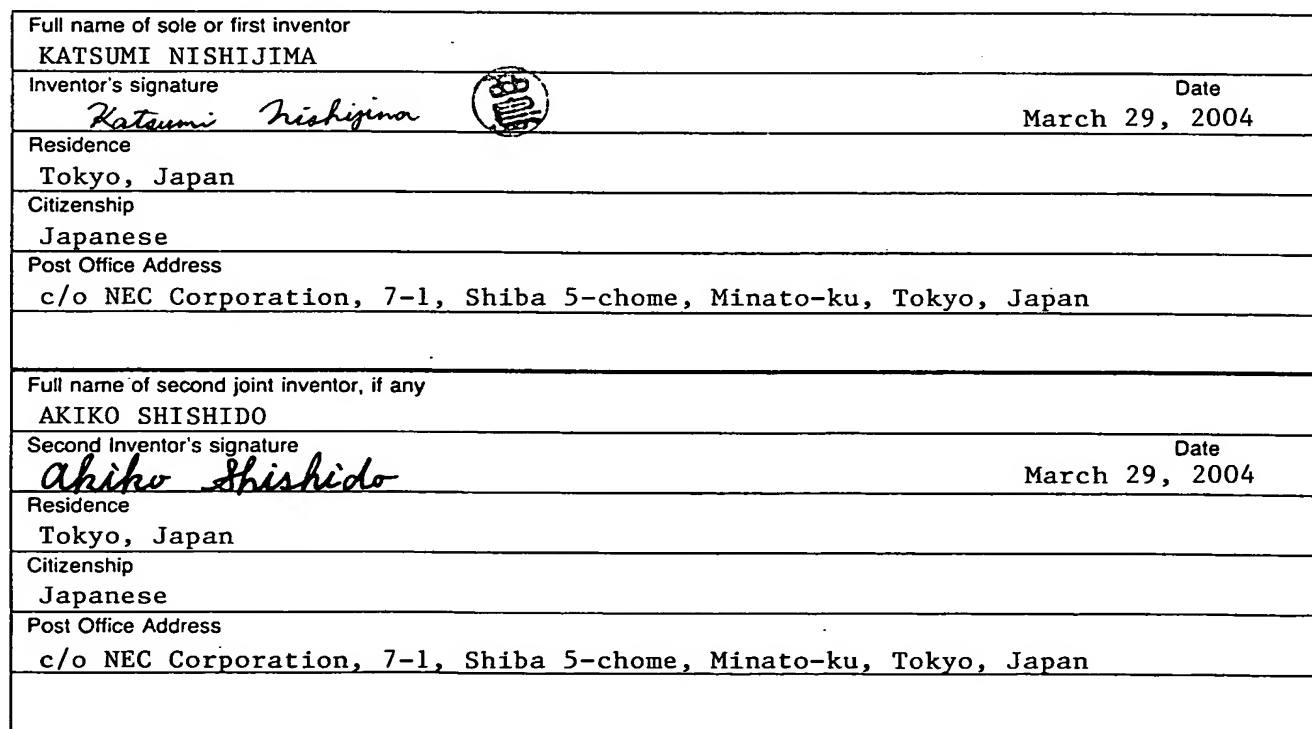 Full name of sole or first inventor
KATSUMI NISHIJIMA
Inventor's signature Date
Katsumi Nishijima March 29, 2004
Residence
Tokyo, Japan
Citizenship
Japanese
Post Office Address
c/o NEC Corporation, 7-1, Shiba 5-chome, Minato-ku, Tokyo, Japan
Full name of second joint inventor, if any
AKIKO SHISHIDO
Second Inventor's signature Date
Akiko Shishido March 29, 2004
Residence
Tokyo, Japan
Citizenship
Japanese
Post Office Address
c/o NEC Corporation, 7-1, Shiba 5-chome, Minato-ku, Tokyo, Japan